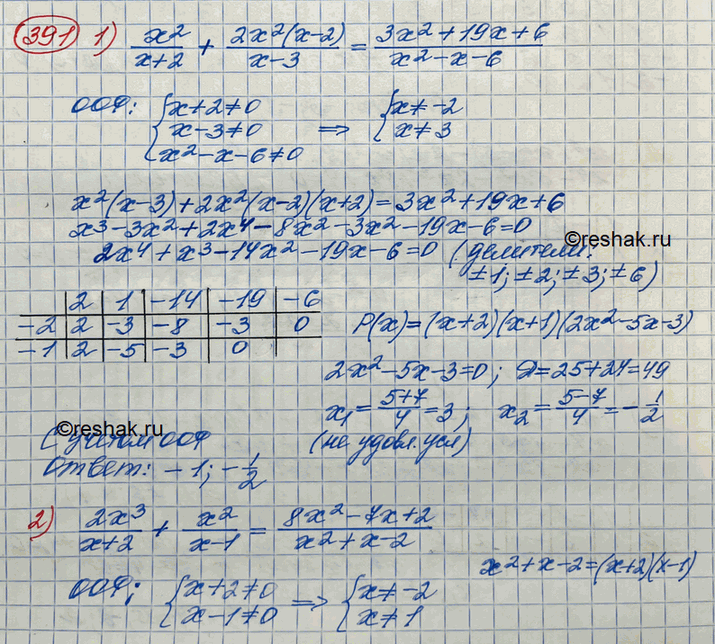 391 1) x²/(x+2) + 2x²(x-2)/(x-3) = (3x²+19x+6)/(x²-x-6)
ООФ: {x+2≠0 {x≠-2
x-3≠0 => x≠3
x²-x-6≠0
x²(x-3)+2x²(x-2)(x+2)=3x²+19x+6
x³-3x²+2x⁴-8x²-3x²-19x-6=0
©reshak.ru
2x⁴+x³-14x²-19x-6=0 (делители:
±1; ±2; ±3; ±6)
2 | 1 | -14 | -19 | -6
-2 | 2 | -3 | -8 | -3 | 0
-1 | 2 | -5 | -3 | 0
P(x)=(x+2)(x+1)(2x²-5x-3)
2x²-5x-3=0; D=25+24=49
x₁=(5+7)/4=3; x₂=(5-7)/4=-1/2
(не удовл. усл)
©reshak.ru
С учетом ООФ
Ответ: -1; -1/2
2) 2x³/(x+2) + x²/(x-1) = (8x²-7x+2)/(x²+x-2)
x²+x-2=(x+2)(x-1)
ООФ: {x+2≠0 => {x≠-2
x-1≠0 x≠1